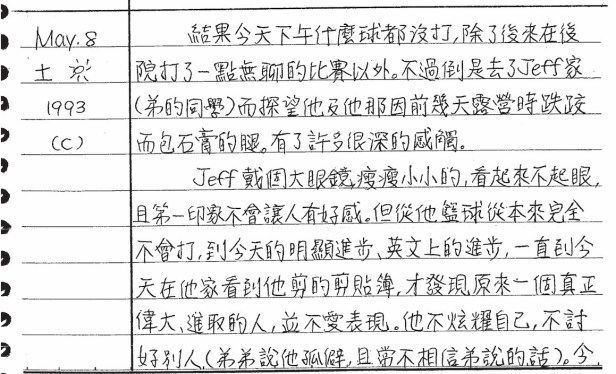 May. 8
土
1993
(C)
結果今天下午什麼球都沒打,除了後來在後
院打了一點無聊的比賽以外。不過倒是去了Jeff家
(弟的同學)而探望他及他那因前幾天露營時跌跤
而包石膏的腿。有了許多很深的感觸。
Jeff戴個大眼鏡,瘦瘦小小的,看起來不起眼,
且第一印象不會讓人有好感。但從他籃球從本來完全
不會打,到今天的明顯進步、英文上的進步,一直到今
天在他家看到他剪的剪貼簿,才發現原來一個真正
偉大、進取的人,並不愛表現。他不炫耀自己,不討
好別人(弟弟說他孤僻,且常不相信弟說的話)。今